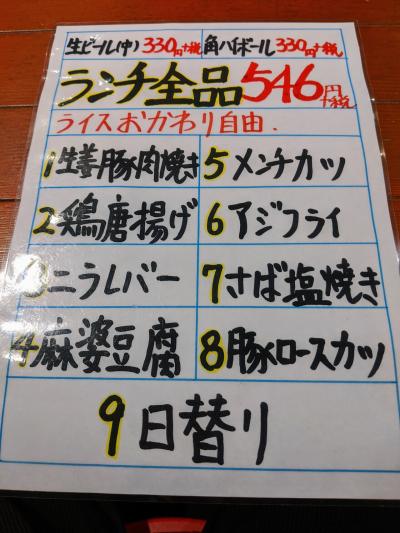 生ビール(中) 330円+税 角ハイボール 330円+税
ランチ全品546円+税
ライスおかわり自由.
1生姜豚肉焼き 5メンチカツ
2鶏唐揚げ 6アジフライ
3ニラレバー 7さば塩焼き
4麻婆豆腐 8豚ロースカツ
9日替り